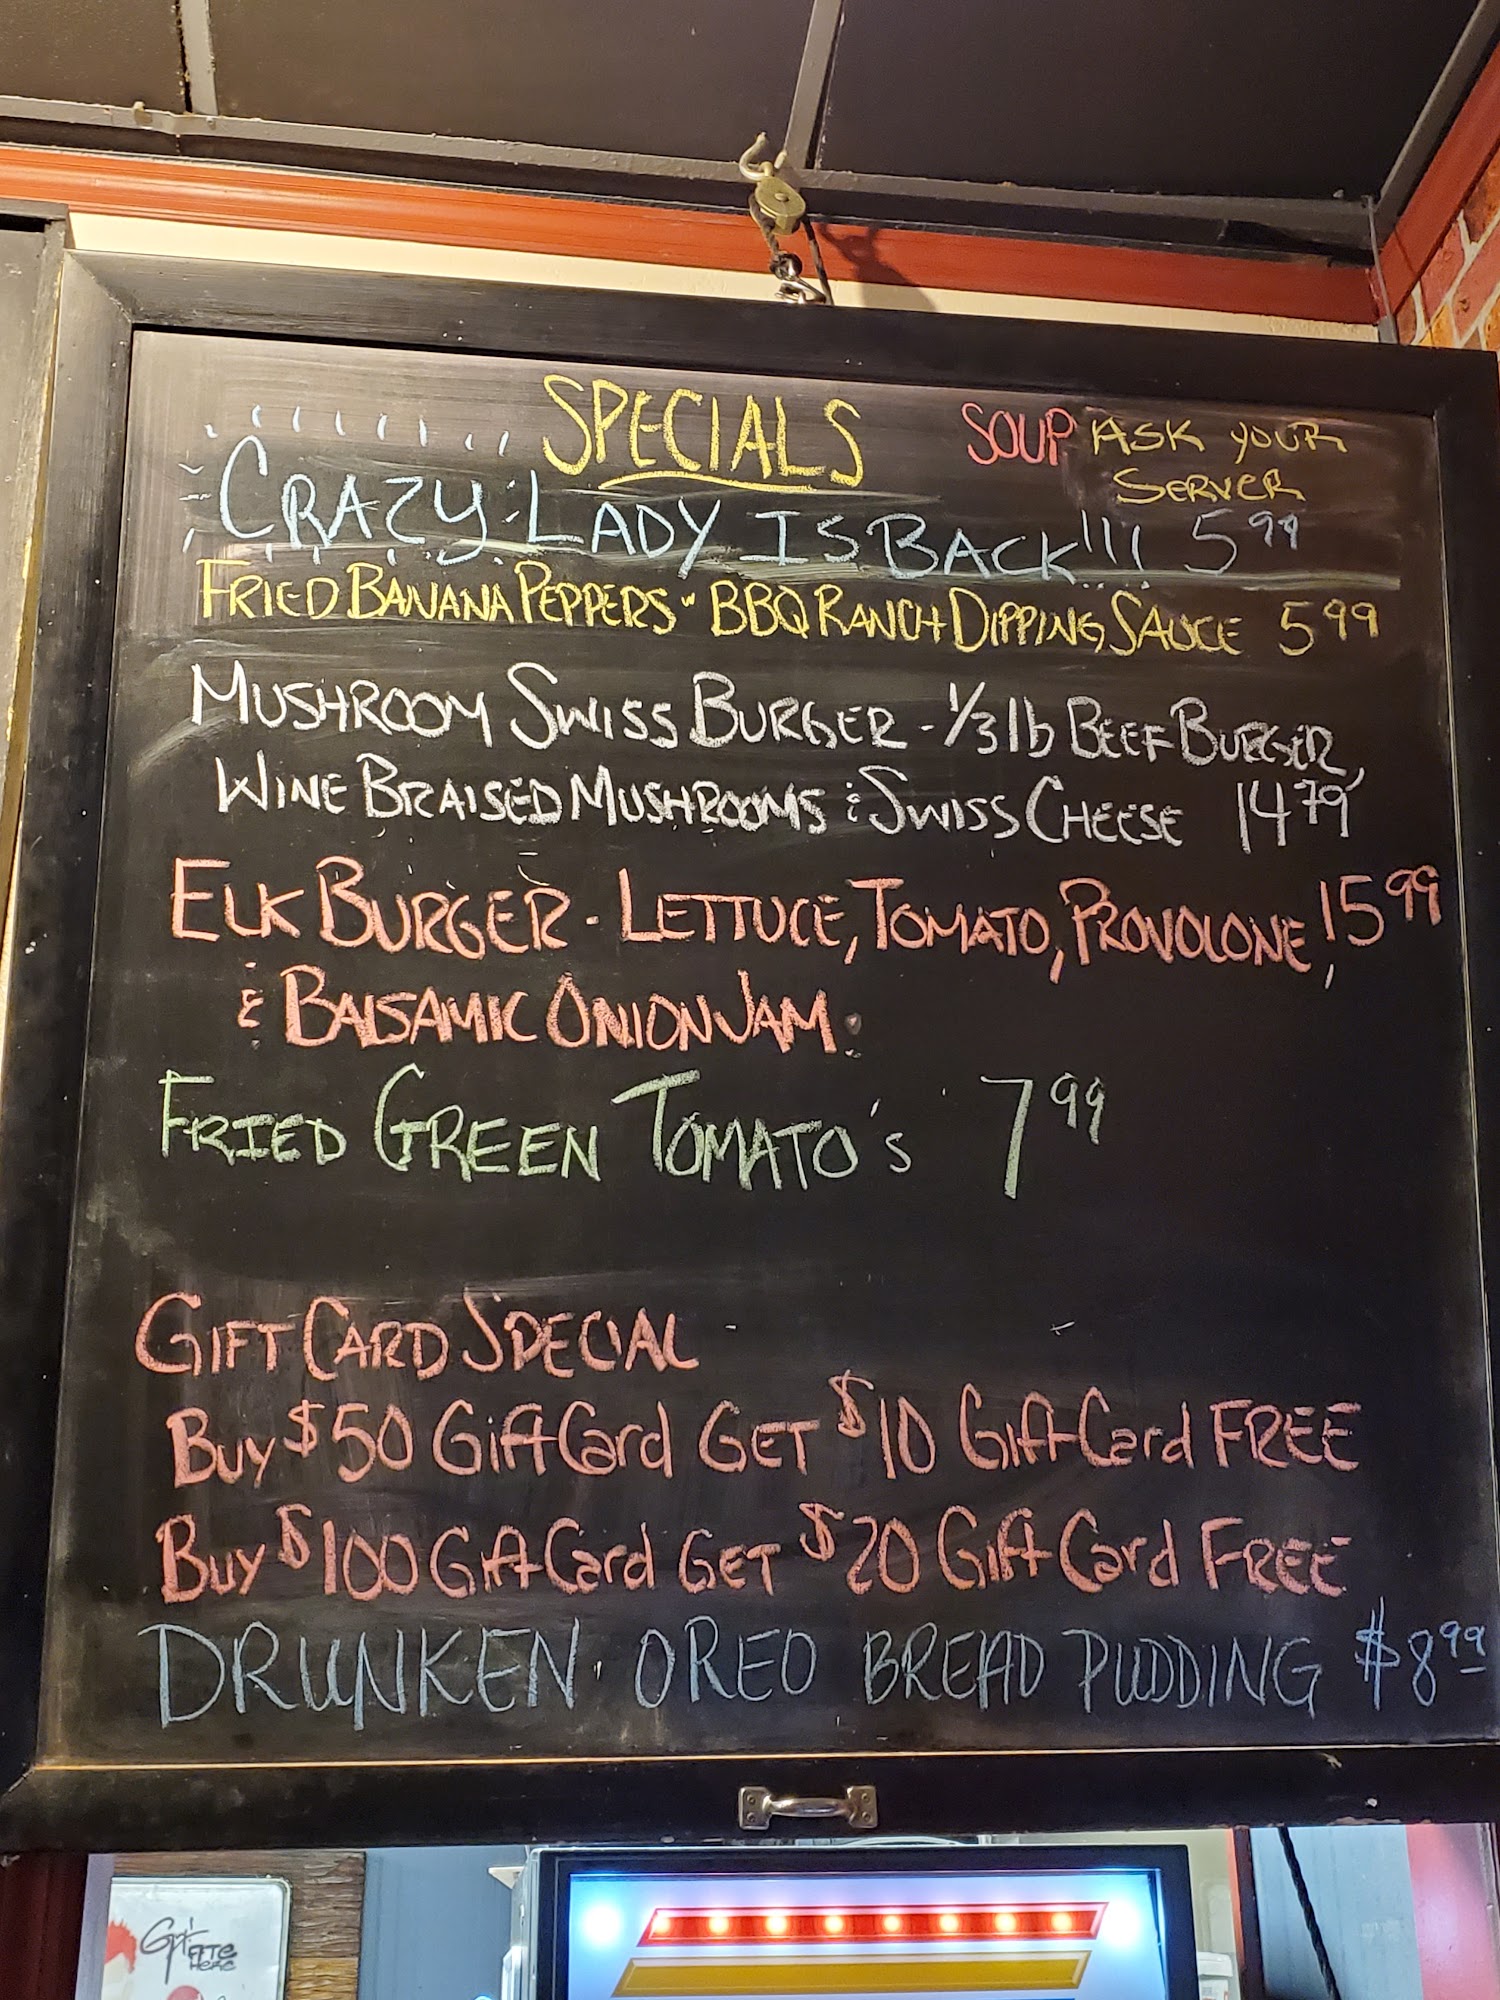 SPECIALS
SOUP ASK YOUR
SERVER
CRAZY LADY IS BACK!!! 5.99
FRIED BANANA PEPPERS - BBQ RANCH DIPPING SAUCE 5 99
MUSHROOM SWISS BURGER - 1/3 lb BEEF BURGER,
WINE BRAISED MUSHROOMS & SWISS CHEESE 14 79
ELK BURGER - LETTUCE, TOMATO, PROVOLONE, 15 99
& BALSAMIC ONION JAM.
FRIED GREEN TOMATO'S 7 99
GIFT CARD SPECIAL
Buy $50 Gift Card GET $10 Gift Card FREE
Buy $100 Gift Card GET $20 Gift Card FREE
DRUNKEN OREO BREAD PUDDING $8 99
HERE